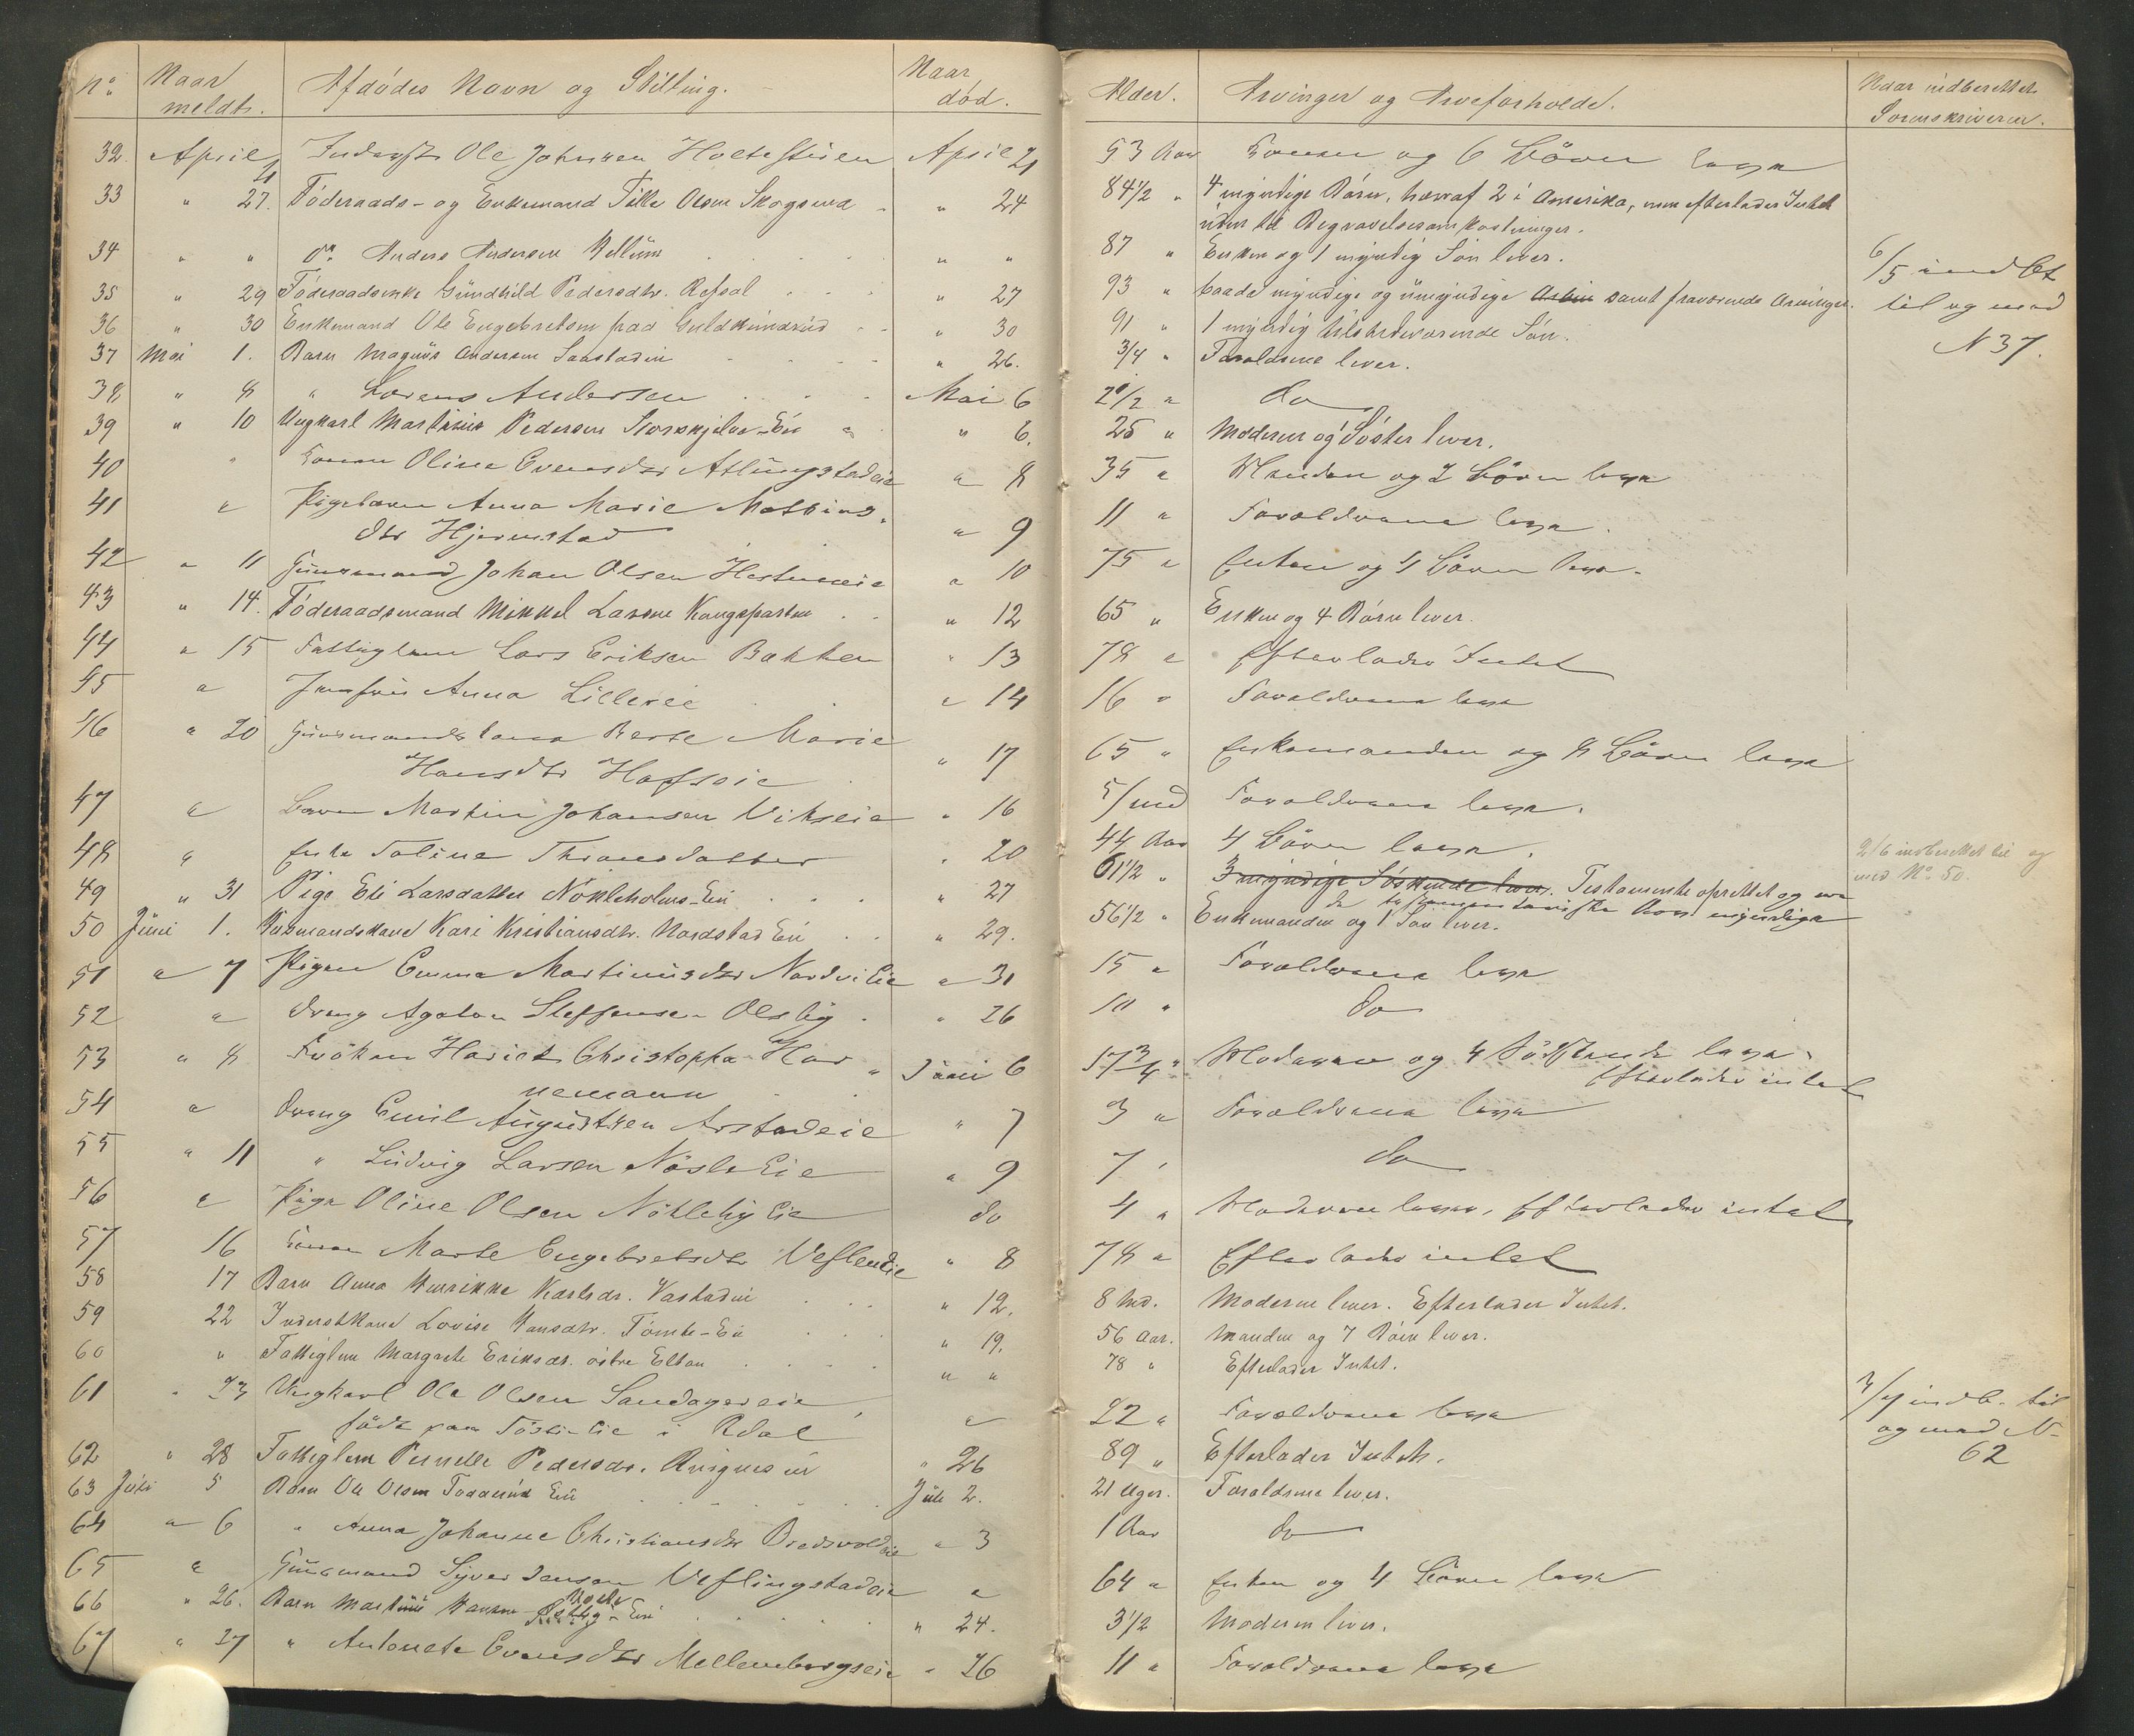 No Naar meldt. Afdödes Navn og Stilling. Naar död. Alder. Arvinger og Arveforholde. Naar indberettet Sorenskriveren.
32. April Inderst Ole Johnsen April 21 53 Aar Konen og 6 Börn leve
33 " 27. Föderaads- og Enkemand Ole Olsen Skogsrud " 24 84 1/2 " 4 myndige Börn, hvoraf 2 i Amerika, men efterlader Intet
uden til Begravelsesomkostninger.
34 " " do Anders Andersen " " 87 " Enken og 1 myndig Sön lever.
6/5 indbt
35 " 29 Föderaadsenke Gundhild Pedersdtr. Refsal " 27 93 " baade myndige og umyndige samt fraværende Arvinger. til og med
36 " 30 Enkemand Ole Engebretsen fra Guldkundrud " 30 91 " 1 myndig tilstedeværende Sön.
N 37.
37 Mai 1. Barn Magnus Andersen Saastadeie " 26. 3/4 " Forældrene lever.
38 " 8 " Lorens Andersen Mai 6 2 1/2 " do
39 " 10 Ungkarl Martinus Pedersen Eie " 6. 25 " Moderen og Söster lever.
40 " Konen Oline Evensdtr Atlungstadeie " 8 35 " Manden og 2 Börn leve
41 " Pigebarn Anna Marie Mathias-
dtr Hjermstad " 9 11 " Forældrene leve.
42 " 11 Huusmand Johan Olsen " 10 75 " Enken og 4 Börn leve.
43 " 14. Föderaadsmand Mikkel Larsen Kongsparten " 12 65 " Enken og 4 Börn lever.
44 " 15 Fattiglem Lars Eriksen Bakken " 13 78 " Efterlader Intet
45 " Jomfru Anna Lillevee " 14 16 " Forældrene leve
46 " 20 Huusmandskone Berte Marie
Hansdtr Hofseie " 17 65 " Enkemanden og 8 Börn leve
47 " Barn Martin Johansen Vikseie " 16 5/md Forældrene leve.
48 " Enke Toline Thronsdatter " 20 44 Aar 4 Börn leve.
2/6 indberettet til og
med No. 50.
49 " 31 Pige Eli Larsdatter Nökleholms-Eie " 27 61 1/2 " 3 myndige Söskende lever. Testamente oprettet og
de testamentariske Arv. myndige
50 Juni 1. Husmandskone Kari Kristiansdtr. Nordstad Eie " 29. 56 1/2 " Enkemanden og 1 Sön lever.
51 " 7 Pigen Emma Martinusdtr Nordvi Eie " 31 15 " Forældrene leve
52 " Dreng Agaton Steffensen Olsby " 26 10 " do
53 " 8 Fröken Hariet Christopha Hor-
nemann " Juni 6 17 3/4 " Moderen og 4 Södskende leve.
Efterlader intet
54 " Dreng Emil Augustsen Arstadeie " 7 3 " Forældrene leve
55 " 11 " Ludvig Larsen Nösle Eie " 9 7 " do
56 " Pige Oline Olsen Nökleby Eie do 4 " Moderen lever, Efterlader intet
57 16 Konen Marte Engebretsdtr " 8 78 " Efterlader intet
58 17 Barn Anna Henrikke Karlsdr. Vastadeie " 12. 8 Md. Moderen lever. Efterlader Intet.
59 22 Inderstkone Lovise Hansdtr. Tömte-Eie " 19. 56 Aar. Manden og 7 Börn lever.
60 " Fattiglem Margrete Eriksdr. östre Elton " " 78 " Efterlader Intet.
61 " 23 Ungkarl Ole Olsen Sandagereie
födt paa Eie i Rdal " 22 " Forældrene leve
3/7 indb. til
og med N-
62
62 " 28 Fattiglem Pernelle Pedersdr. " 26 89 " Efterlader Intet.
63 Juli 5 Barn Ole Olsen Eie Juli 2. 21 Uger. Forældrene lever.
64 " 6 " Anna Johanne Christiansdtr " 3 1 Aar do
65 " Huusmand Syver Jensen Veflingstadeie " 64 " Enken og 4 Börn leve
66 " 26. Barn Martinus Hansen Eie " 24. 3 1/2 Moderen lever.
67 " 27 " Antonete Evensdtr Mellembergseie " 26 11 " Forældrene leve